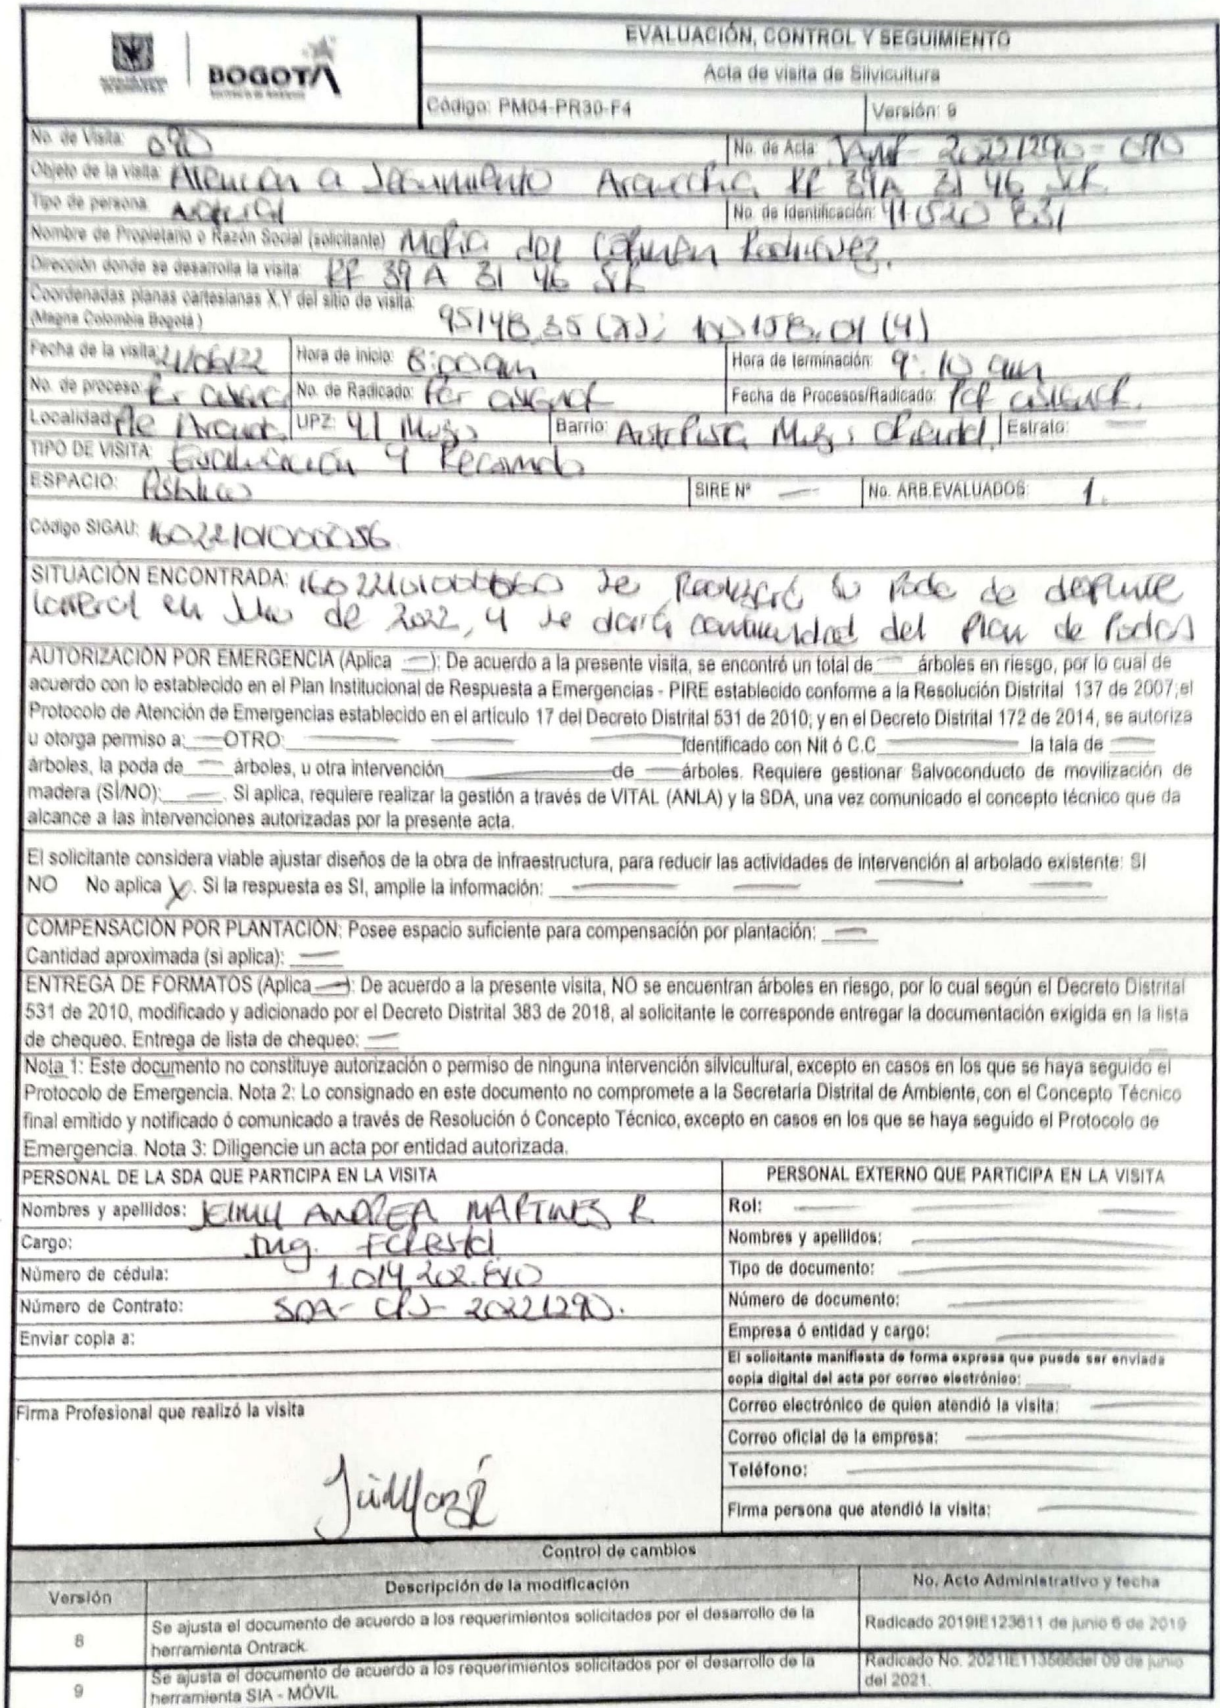 BOGOTÁ
EVALUACIÓN, CONTROL Y SEGUIMIENTO
Acta de visita de Silvicultura
Código: PM04-PR30-F4 Versión: 9
No. de Visita: 090 No. de Acta: 20221290-090
Objeto de la visita: Atención a 39A 31 46 SUR
Tipo de persona: Natural No. de Identificación: 41520 831
Nombre de Propietario o Razón Social (solicitante) Maria del Carmen Rodriguez.
Dirección donde se desarrolla la visita: 39 A 31 46 SUR
Coordenadas planas cartesianas X,Y del sitio de visita:
(Magna Colombia Bogotá) 95148,35 (X); 100158,01 (Y)
Fecha de la visita: 21/06/22 Hora de inicio: 8:00am Hora de terminación: 9:10 am
No. de proceso: Por asignar No. de Radicado: Por asignar Fecha de Procesos/Radicado: Por asignar.
Localidad: Pte Aranda UPZ: 41 Muzu Barrio: Autopista Muzu Oriental Estrato: —
TIPO DE VISITA: Evaluación y
ESPACIO: Público SIRE Nº — No. ARB.EVALUADOS: 1.
Código SIGAU: 16022101000056
SITUACIÓN ENCONTRADA: se Realizará su Poda de despunte
lateral en Julio de 2022, y se dará continuidad del Plan de Podas
AUTORIZACIÓN POR EMERGENCIA (Aplica —): De acuerdo a la presente visita, se encontró un total de — árboles en riesgo, por lo cual de
acuerdo con lo establecido en el Plan Institucional de Respuesta a Emergencias - PIRE establecido conforme a la Resolución Distrital 137 de 2007;el
Protocolo de Atención de Emergencias establecido en el artículo 17 del Decreto Distrital 531 de 2010; y en el Decreto Distrital 172 de 2014, se autoriza
u otorga permiso a:____OTRO: — — — Identificado con Nit ó C.C — la tala de —
árboles, la poda de — árboles, u otra intervención — de — árboles. Requiere gestionar Salvoconducto de movilización de
madera (SÍ/NO): —. Si aplica, requiere realizar la gestión a través de VITAL (ANLA) y la SDA, una vez comunicado el concepto técnico que da
alcance a las intervenciones autorizadas por la presente acta.
El solicitante considera viable ajustar diseños de la obra de infraestructura, para reducir las actividades de intervención al arbolado existente: SI
NO No aplica X. Si la respuesta es SI, amplie la información: — — — —
COMPENSACIÓN POR PLANTACIÓN: Posee espacio suficiente para compensación por plantación: —
Cantidad aproximada (si aplica): —
ENTREGA DE FORMATOS (Aplica —): De acuerdo a la presente visita, NO se encuentran árboles en riesgo, por lo cual según el Decreto Distrital
531 de 2010, modificado y adicionado por el Decreto Distrital 383 de 2018, al solicitante le corresponde entregar la documentación exigida en la lista
de chequeo. Entrega de lista de chequeo: —
Nota 1: Este documento no constituye autorización o permiso de ninguna intervención silvicultural, excepto en casos en los que se haya seguido el
Protocolo de Emergencia. Nota 2: Lo consignado en este documento no compromete a la Secretaría Distrital de Ambiente, con el Concepto Técnico
final emitido y notificado ó comunicado a través de Resolución ó Concepto Técnico, excepto en casos en los que se haya seguido el Protocolo de
Emergencia. Nota 3: Diligencie un acta por entidad autorizada.
PERSONAL DE LA SDA QUE PARTICIPA EN LA VISITA PERSONAL EXTERNO QUE PARTICIPA EN LA VISITA
Nombres y apellidos: JEIMMY ANDREA MARTINEZ R Rol: —
Cargo: Ing. Forestal Nombres y apellidos: —
Número de cédula: 1.014.202. Tipo de documento: —
Número de Contrato: SDA-CPS-20221290. Número de documento: —
Enviar copia a: Empresa ó entidad y cargo: —
El solicitante manifiesta de forma expresa que puede ser enviada
copia digital del acta por correo electrónico: ____
Firma Profesional que realizó la visita Correo electrónico de quien atendió la visita: —
Correo oficial de la empresa: —
Teléfono: —
Firma persona que atendió la visita: —
Control de cambios
Versión Descripción de la modificación No. Acto Administrativo y fecha
8 Se ajusta el documento de acuerdo a los requerimientos solicitados por el desarrollo de la
herramienta Ontrack. Radicado 2019IE123611 de junio 6 de 2019
9 Se ajusta el documento de acuerdo a los requerimientos solicitados por el desarrollo de la
herramienta SIA - MÓVIL Radicado No. del 09 de junio
del 2021.